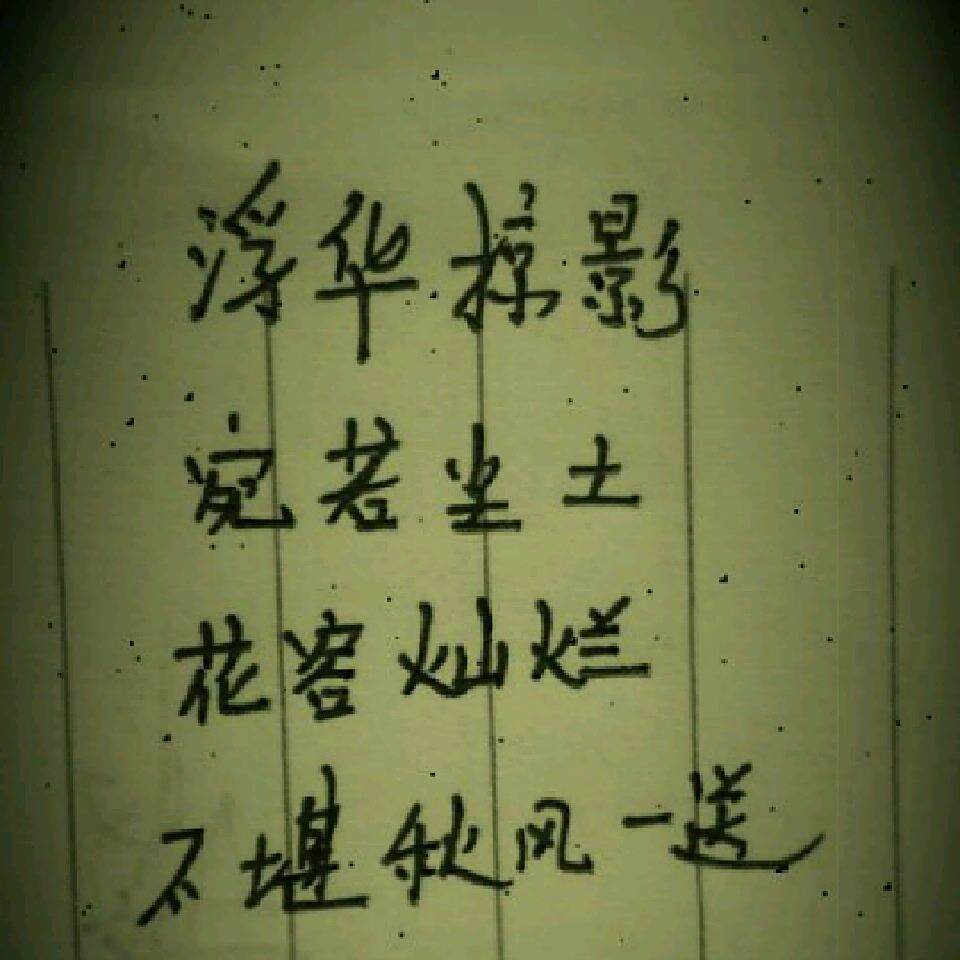 浮华掠影
宛若尘土
花容灿烂
不堪秋风一送